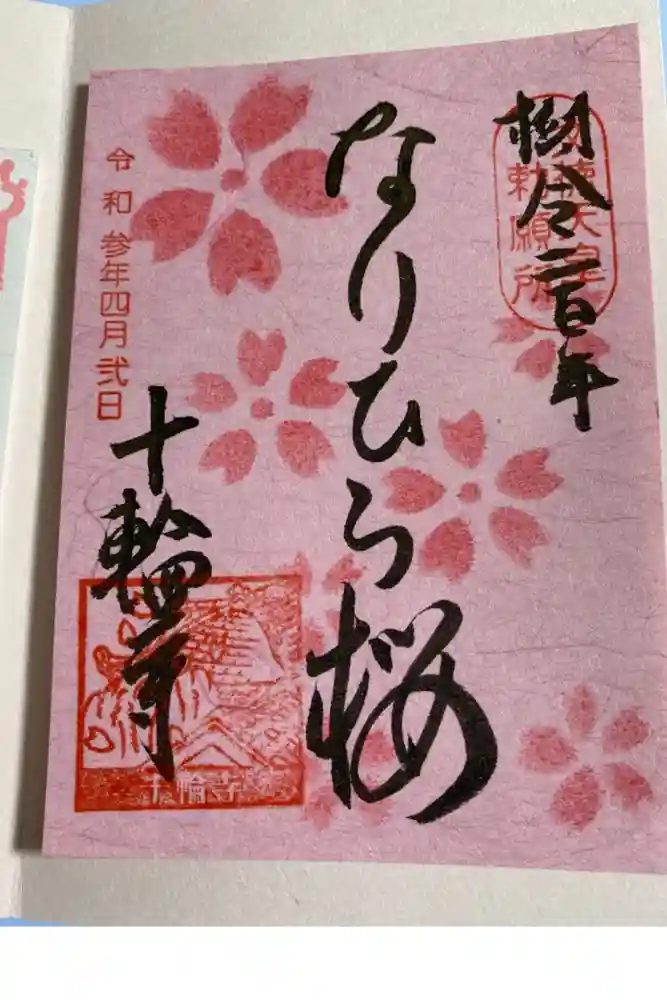 樹令二百年
勅願所
なりひら桜
令和参年四月弐日
十輪寺
十輪寺